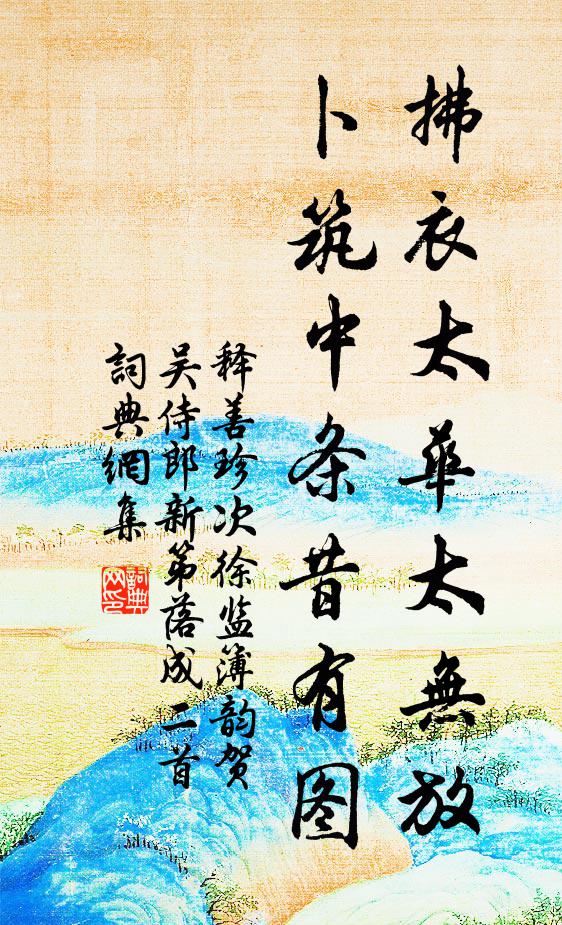 拂衣太華太無放
卜筑中条昔有图
释善珍次徐监簿韵贺
吴侍郎新第落成二首
詞典網集
詞典网印